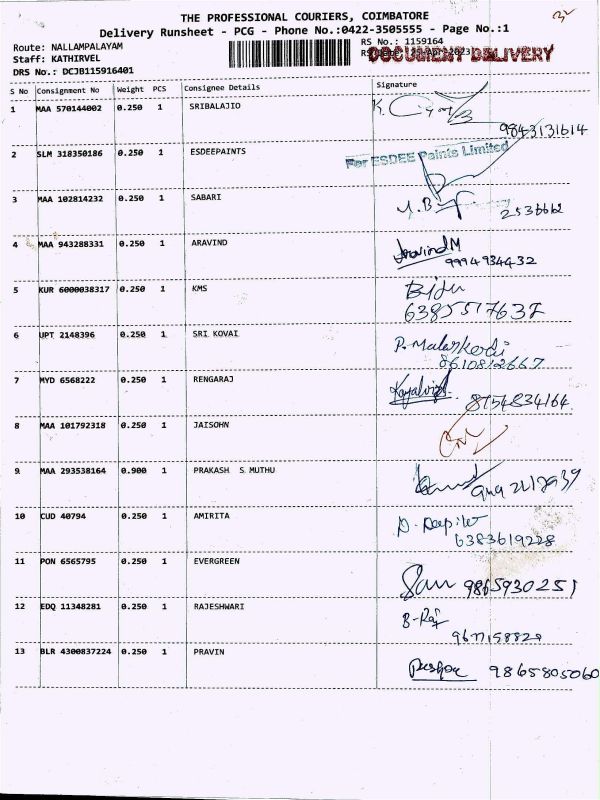 THE PROFESSIONAL COURIERS, COIMBATORE
Delivery Runsheet - PCG - Phone No.:0422-3505555 - Page No.:1
Route: NALLAMPALAYAM
RS No.: 1159164
Staff: KATHIRVEL
DOCUMENT DELIVERY
DRS No.: DCJB115916401
S No Consignment No Weight PCS Consignee Details Signature
1 MAA 570144002 0.250 1 SRIBALAJIO
9843131614
2 SLM 318350186 0.250 1 ESDEEPAINTS
For ESDEE Paints Limited
3 MAA 102814232 0.250 1 SABARI
2536662
4 MAA 943288331 0.250 1 ARAVIND Aravind M
9994934432
5 KUR 6000038317 0.250 1 KMS Biju
6385517637
6 UPT 2148396 0.250 1 SRI KOVAI P. Malarkodi
8610812667
7 MYD 6568222 0.250 1 RENGARAJ
8754834164
8 MAA 101792318 0.250 1 JAISOHN
9 MAA 293538164 0.900 1 PRAKASH S MUTHU
10 CUD 40794 0.250 1 AMIRITA
6383619228
11 PON 6565795 0.250 1 EVERGREEN
9865930251
12 EDQ 11348281 0.250 1 RAJESHWARI B-Raj
9677158829
13 BLR 4300837224 0.250 1 PRAVIN
9865805060